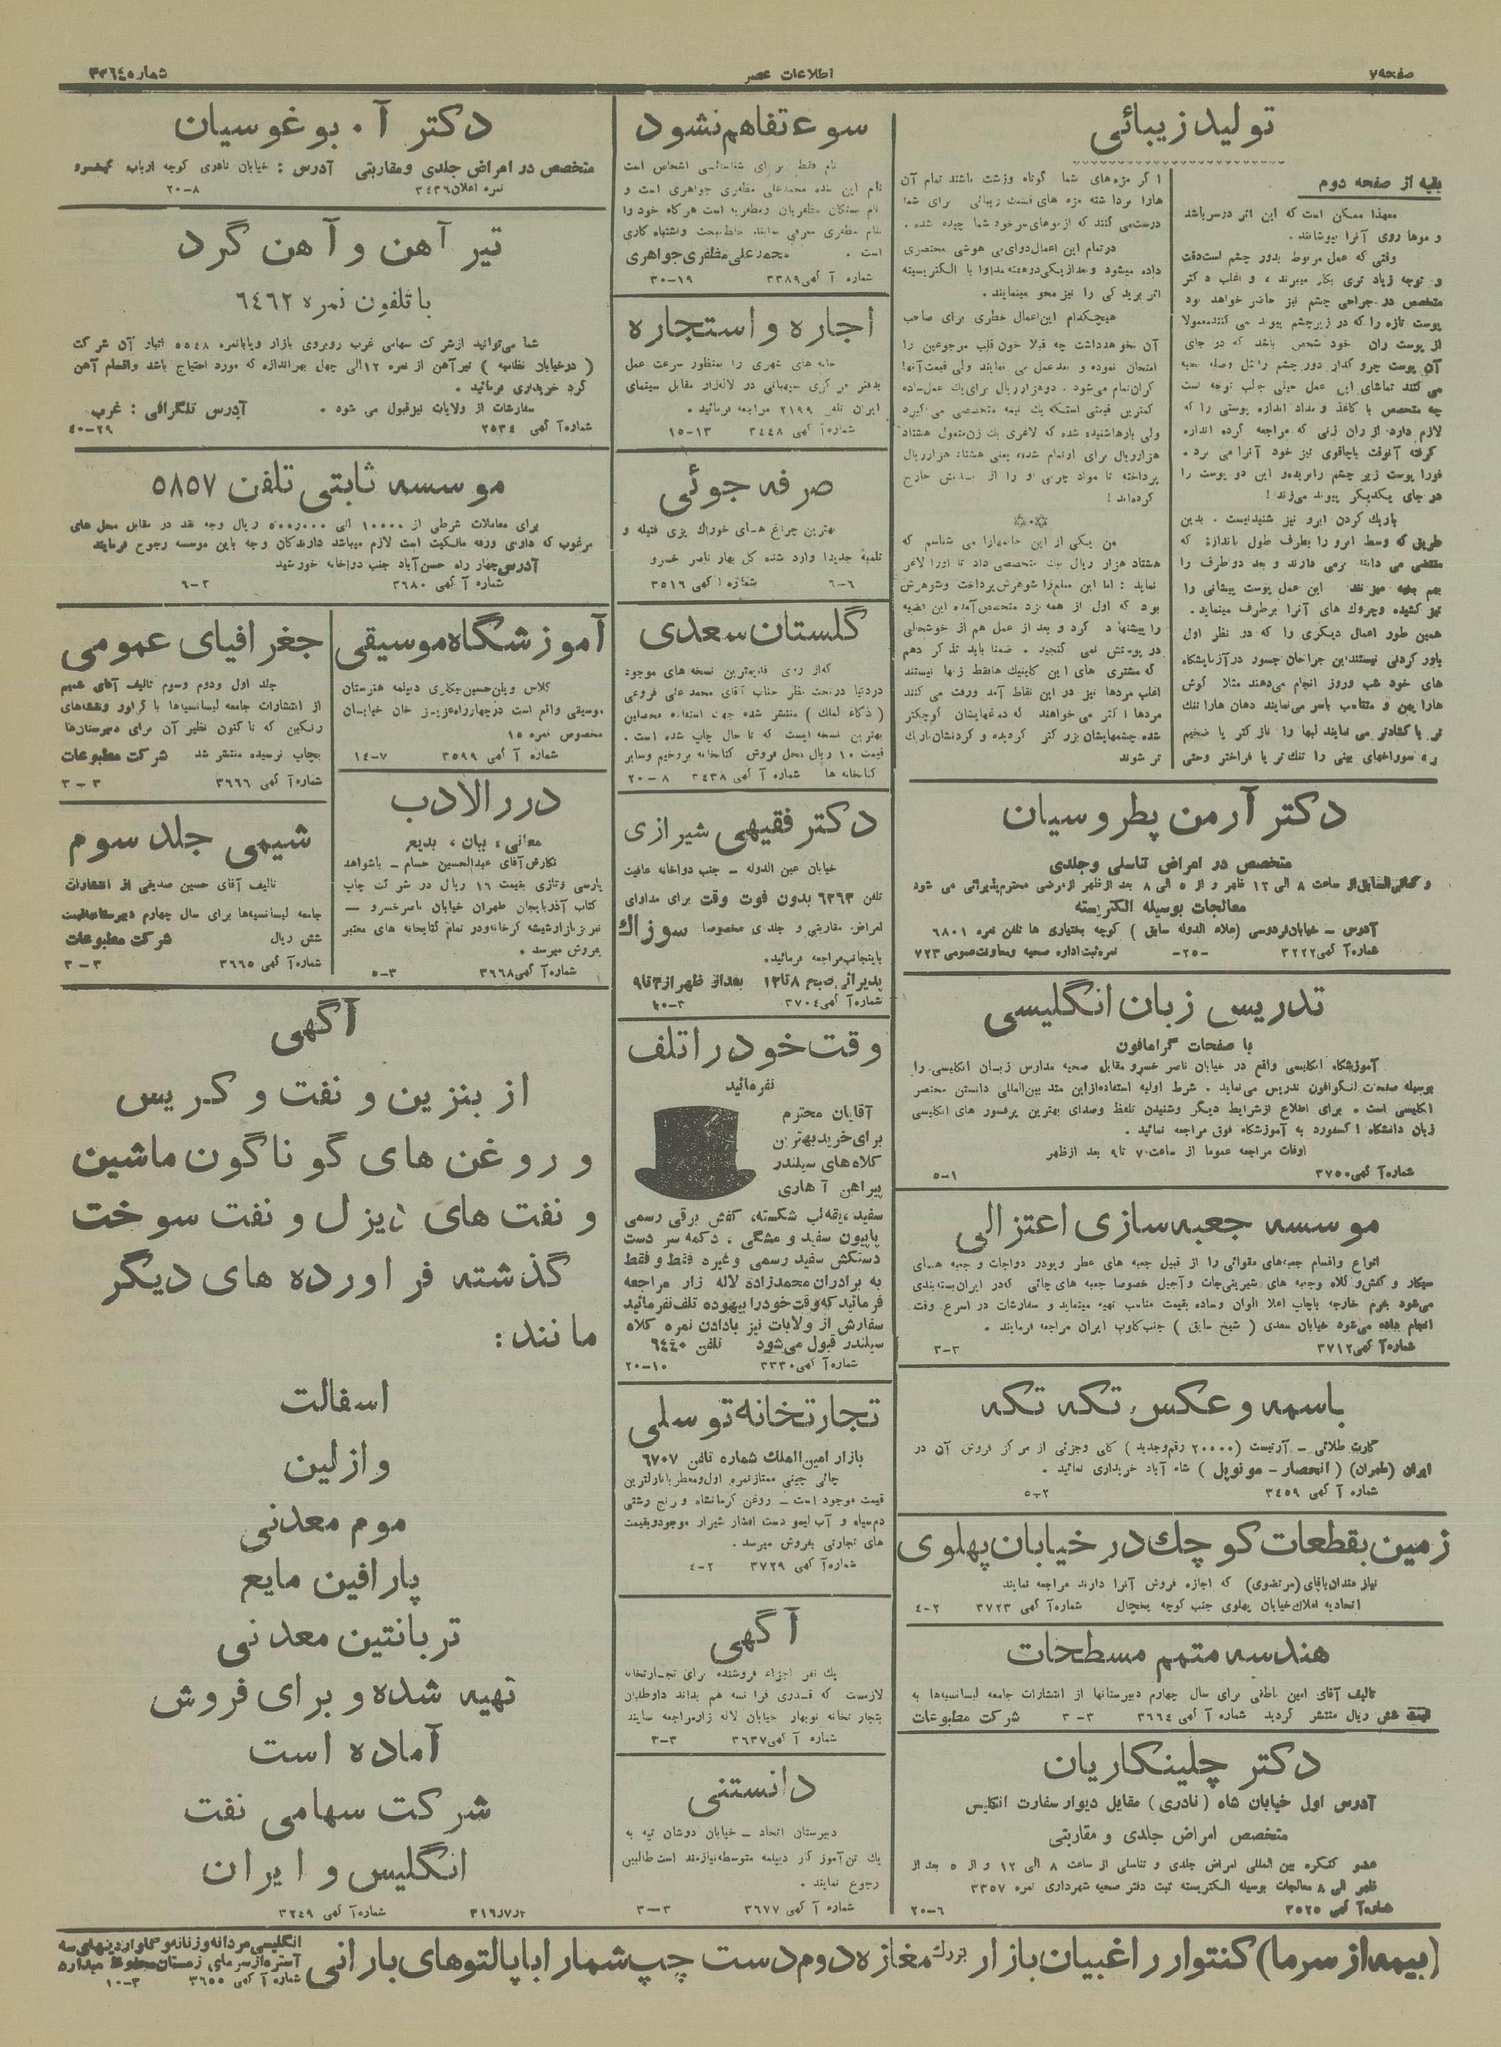 صفحه ۷
اطلاعات عصر
شماره ۳۳۶۴۵
تولید زیبائی
بقیه از صفحه دوم
معهذا ممکن است که این اثر در سر باشد
و موها روی آنرا میپوشانند.
وقتی که عمل مربوط بدور چشم است دقت
و توجه زیاد تری بکار میبرند ، و اغلب دکتر
متخصص در جراحی چشم نیز حاضر خواهد بود
پوست تازه را که در زیر چشم پیوند می کنند معمولا
از پوست ران خود شخص باشد که در جای
آن پوست چرو کدار دور چشم را مثل وصله بخیه
می کنند تماشای این عمل خیلی جالب توجه است
چه متخصص با کاغذ و مداد اندازه پوستی را که
لازم دارد از ران زنی که مراجعه کرده اندازه
گرفته آنوقت باچاقوی تیز خود آنرا می برد .
فورا پوست زیر چشم را بریده و این دو پوست را
در جای یکدیگر پیوند می زند !
باریك کردن ابرو نیز شنیدنیست . بدین
طریق که وسط ابرو را بطرف طول باندازه که
مقتضی می دانند برمی دارند و بعد دو طرف را
بهم بخیه میزنند این عمل پوست پیشانی را
نیز کشیده وچروك های آنرا برطرف مینماید.
همین طور اعمال دیگری را که در نظر اول
باور کردنی نیستند این جراحان جسور در آزمایشگاه
های خود شب وروز انجام می‌دهند مثلا گوش
هارا پهن و متناسب باسر می‌نمایند دهان هارا تنك
تر یا گشادتر می نمایند لبها را نازکتر یا ضخیم
و سوراخهای بینی را تنك تر یا فراختر وحتی
اگر مژه های شما کوتاه وزشت باشند تمام آن
هارا برداشته مژه های قشنك زیبائی برای شما
درست می کنند که از موهای سر خود شما چیده شده .
در تمام این اعمال دوای بی هوشی مختصری
داده میشود و بعد از یکی دو هفته مداوا با الکتریسیته
اثر بریدگی را نیز محو مینمایند.
هیچکدام این اعمال خطری برای صاحب
آن نخواهد داشت چه قبلا خون قلب مراجعین را
امتحان نموده و بعد عمل می نمایند ولی قیمت آنها
گران تمام می شود . دو هزار ریال برای یك عمل ساده
کمترین قیمتی است که یك نیمه متخصص می گیرد
ولی بارها شنیده شده که لاغری یك زن متمول هشتاد
هزار ریال برای او تمام شده یعنی هشتاد هزار ریال
پرداخته تا مواد چربی او را از بدنش خارج
کرده اند !
من یکی از این خانمها را می شناسم که
هشتاد هزار ریال بیك متخصصی داد تا او را لاغر
نماید : اما این مبلغ را شوهرش پرداخت وشوهرش
بود که اول از همه نزد متخصص آمده این قضیه
را پیشنهاد کرد و بعد از عمل هم از خوشحالی
در پوستش نمی گنجید . ضمنا باید تذکر دهم
که مشتری های این کلینیك ها فقط زنها نیستند
اغلب مردها نیز در این نقاط آمد ورفت می کنند
مردها اکثر می خواهند که دماغهایشان کوچکتر
شده چشمهایشان بزرگتر گردیده و گردنشان باریك
تر شوند
دکتر آرمن پطروسیان
متخصص در امراض تناسلی وجلدی
و کمافی السابق از ساعت ۸ الی ۱۲ ظهر و از ۵ الی ۸ بعد از ظهر از مرضی محترم پذیرائی می شود
معالجات بوسیله الکتریسته
آدرس – خیابان فردوسی (علاء الدوله سابق ) کوچه بختیاری ها تلفن نمره ۶۸۰۱
شماره آگهی ۳۲۲۲ -۲۵- نمره ثبت اداره صحیه ومعاونت عمومی ۷۲۳
تدریس زبان انگلیسی
با صفحات گرامافون
آموزشگاه انگلیسی واقع در خیابان ناصر خسرو مقابل صحیه مدارس زبان انگلیسی را
بوسیله صفحات لنگوافون تدریس می نماید . شرط اولیه استفاده از این متد بین المللی دانستن مختصر
انگلیسی است . برای اطلاع از شرایط دیگر وشنیدن تلفظ وصدای بهترین پرفسور های انگلیسی
زبان دانشگاه اکسفورد به آموزشگاه فوق مراجعه نمائید .
اوقات مراجعه عموما از ساعت ۷ تا ۹ بعد از ظهر
شماره آگهی ۳۷۵۰ ۱-۵
موسسه جعبه سازی اعتزالی
انواع واقسام جعبه‌های مقوائی را از قبیل جعبه های عطر وپودر دواجات و جعبه های
سیگار و کفش و کلاه وجعبه های شیرینی جات و آجیل خصوصا جعبه های چائی که در ایران بسته بندی
می‌شود بفرم خارجه باچاپ اعلا الوان وساده بقیمت مناسب تهیه مینماید و سفارشات در اسرع وقت
انجام داده می‌شود خیابان سعدی ( شیخ سابق ) جنب کلوب ایران مراجعه فرمایند .
شماره آگهی ۳۷۱۲ ۳-۳
باسمه و عکس تکه تکه
کارت طلائی – آرتیست (۲۰۰۰۰ رقم وجدید ) کلی وجزئی از مرکز فروش آن در
ایران (طهران) ( انحصار – مونوپل ) شاه آباد خریداری نمائید .
شماره آگهی ۳۴۵۹ ۲-۵
زمین بقطعات کوچك در خیابان پهلوی
نیاز مندان باقای (مرتضوی) که اجازه فروش آنرا دارند مراجعه نمایند
اتحادیه املاك خیابان پهلوی جنب کوچه یخچال شماره آگهی ۳۷۲۳ ۲-۴
هندسه متمم مسطحات
تالیف آقای امین ناطقی برای سال چهارم دبیرستانها از انتشارات جامعه لیسانسیه‌ها به
قیمت شش ریال منتشر گردید شماره آگهی ۳۶۶۴ ۳-۳ شرکت مطبوعات
دکتر چلینگاریان
آدرس اول خیابان شاه ( نادری ) مقابل دیوار سفارت انگلیس
متخصص امراض جلدی و مقاربتی
عضو کنگره بین المللی امراض جلدی و تناسلی از ساعت ۸ الی ۱۲ و از ۵ بعد از
ظهر الی ۸ معالجات بوسیله الکتریسته ثبت دفتر صحیه شهرداری نمره ۳۳۵۷
شماره آگهی ۳۵۲۵ ۶-۲۰
سوء تفاهم نشود
نام فقط برای شناسائی اشخاص است
نام این بنده محمدعلی مظفری جواهری است و
نام بستگان مظفریان ومظفریه است هرگاه خود را
بنام مظفری معرفی نمایند خلط مبحث واشتباه کاری
است . محمد علی مظفری جواهری
شماره آگهی ۳۳۸۹ ۱۹-۳۰
اجاره و استجاره
خانه های شهری را بمنظور سرعت عمل
بدفتر مرکزی سپهبانی در لاله زار مقابل سینمای
ایران تلفن ۲۱۹۹ مراجعه فرمائید .
شماره آگهی ۳۴۴۸ ۱۳-۱۵
صرفه جوئی
بهترین چراغ های خوراك پزی فتیله و
تلمبهٔ جدیدا وارد شده کل بهار ناصر خسرو
شماره آگهی ۳۵۱۶ ۶-۶
گلستان سعدی
که از روی قدیمترین نسخه های موجود
در دنیا در تحت نظر جناب آقای محمد علی فروغی
( ذکاء الملك ) منتشر شده جهت استفاده محصلین
بهترین نسخه ایست که تا حال چاپ شده است .
قیمت ۱۰ ریال محل فروش کتابخانه بروخیم وسایر
کتابخانه ها شماره آگهی ۳۴۳۸ ۸-۲۰
دکتر فقیهی شیرازی
خیابان عین الدوله – جنب دواخانه عافیت
تلفن ۶۳۶۳ بدون فوت وقت برای مداوای
امراض مقاربتی و جلدی مخصوصا سوزاك
باینجانب مراجعه فرمائید.
پذیرائی صبح ۸ تا ۱۲ بعد از ظهر از ۳ تا ۹
شماره آگهی ۳۷۰۴ ۳-۲۰
وقت خود را تلف
نفرمائید
آقایان محترم
برای خرید بهترین
کلاه های سیلندر
پیراهن آهاری
سفید، یقه لب شکسته، کفش برقی رسمی
پاپیون سفید و مشگی ، دکمه سر دست
دستکش سفید رسمی وغیره فقط و فقط
به برادران محمدزاده لاله زار مراجعه
فرمائید که وقت خود را بیهوده تلف نفرمائید
سفارش از ولایات نیز بادادن نمره کلاه
سیلندر قبول می‌شود تلفن ۶۴۴۰
شماره آگهی ۳۳۳۰ ۱۰-۲۰
تجارتخانه توسلی
بازار امین الملك شماره تلفن ۶۷۰۷
چائی چینی ممتاز نمره اول ومعطر بانازلترین
قیمت موجود است – روغن کرمانشاه و برنج رشتی
دم سیاه و آب لیمو دست افشار شیراز موجود و بقیمت
های تجارتی بفروش میرسد .
شماره آگهی ۳۷۲۹ ۲-۴
آگهی
یك نفر اجزاء فروشنده برای تجارتخانه
لازمست که قدری فرانسه هم بداند داوطلبان
بتجارتخانه نوبهار خیابان لاله زار مراجعه نمایند
شماره آگهی ۳۶۳۷ ۳-۳
دانستنی
دبیرستان اتحاد – خیابان دوشان تپه به
یك تن آموزگار دیپلمه متوسطه نیازمند است طالبین
رجوع نمایند .
شماره آگهی ۳۶۷۷ ۳-۳
دکتر آ . بوغوسیان
متخصص در امراض جلدی ومقاربتی آدرس : خیابان نادری کوچه ارباب کیخسرو
نمره اعلان ۳۴۳۶ ۸-۲۰
تیر آهن و آهن گرد
با تلفون نمره ۶۴۶۲
شما می‌توانید از شرکت سهامی غرب روبروی بازار ویا بانمره ۵۵۴۸ انبار آن شرکت
( در خیابان نظامیه ) تیرآهن از نمره ۱۲ الی چهل بهر اندازه که مورد احتیاج باشد واقسام آهن
گرد خریداری فرمائید .
سفارشات از ولایات نیز قبول می شود . آدرس تلگرافی : غرب
شماره آگهی ۲۵۳۴ ۲۹-۴۰
موسسه ثابتی تلفن ۵۸۵۷
برای معاملات شرطی از ۱۰۰۰۰ الی ۵۰۰ر۰۰۰ ریال وجه نقد در مقابل محل های
مرغوب که دارای ورقه مالکیت است لازم میباشد دارندگان وجه باین موسسه رجوع فرمایند
آدرس چهار راه حسن آباد جنب دواخانه خورشید
شماره آگهی ۳۶۸۰ ۲-۶
آموزشگاه موسیقی
کلاس ویلن حسین بیکاری دیپلمه هنرستان
موسیقی واقع است در چهارراه عزیز خان خیابان
مخصوص نمره ۱۵
شماره آگهی ۳۵۹۹ ۷-۱۴
جغرافیای عمومی
جلد اول ودوم وسوم تالیف آقای شمیم
از انتشارات جامعه لیسانسیه‌ها با گراور ونقشه‌های
رنگین که تاکنون نظیر آن برای دبیرستانها
بچاپ نرسیده منتشر شد شرکت مطبوعات
شماره آگهی ۳۶۶۶ ۳-۳
دررالادب
معانی ، بیان ، بدیع
نگارش آقای عبدالحسین حسام – باشواهد
پارسی وتازی بقیمت ۱۶ ریال در شرکت چاپ
کتاب آذربایجان طهران خیابان ناصرخسرو –
تبریز بازار شیشه گرخانه ودر تمام کتابخانه های معتبر
بفروش میرسد .
شماره آگهی ۳۶۶۸ ۳-۵
شیمی جلد سوم
تالیف آقای حسین صدیقی از انتشارات
جامعه لیسانسیه‌ها برای سال چهارم دبیرستانها بقیمت
شش ریال شرکت مطبوعات
شماره آگهی ۳۶۶۵ ۳-۳
آگهی
از بنزین و نفت و کریس
و روغن های گوناگون ماشین
و نفت های دیزل و نفت سوخت
گذشته فراورده های دیگر
مانند:
اسفالت
وازلین
موم معدنی
پارافین مایع
تربانتین معدنی
تهیه شده و برای فروش
آماده است
شرکت سهامی نفت
انگلیس و ایران
شماره آگهی ۳۲۴۹
(بیمه از سرما) کنتوار راغبیان بازار بزرك مغازه دوم دست چپ شمارا با پالتوهای بارانی
انگلیسی مردانه و زنانه و گاواردینهای سه
آستره از سرمای زمستان محفوظ میدارد
شماره آگهی ۳۶۵۵ ۳-۱۰